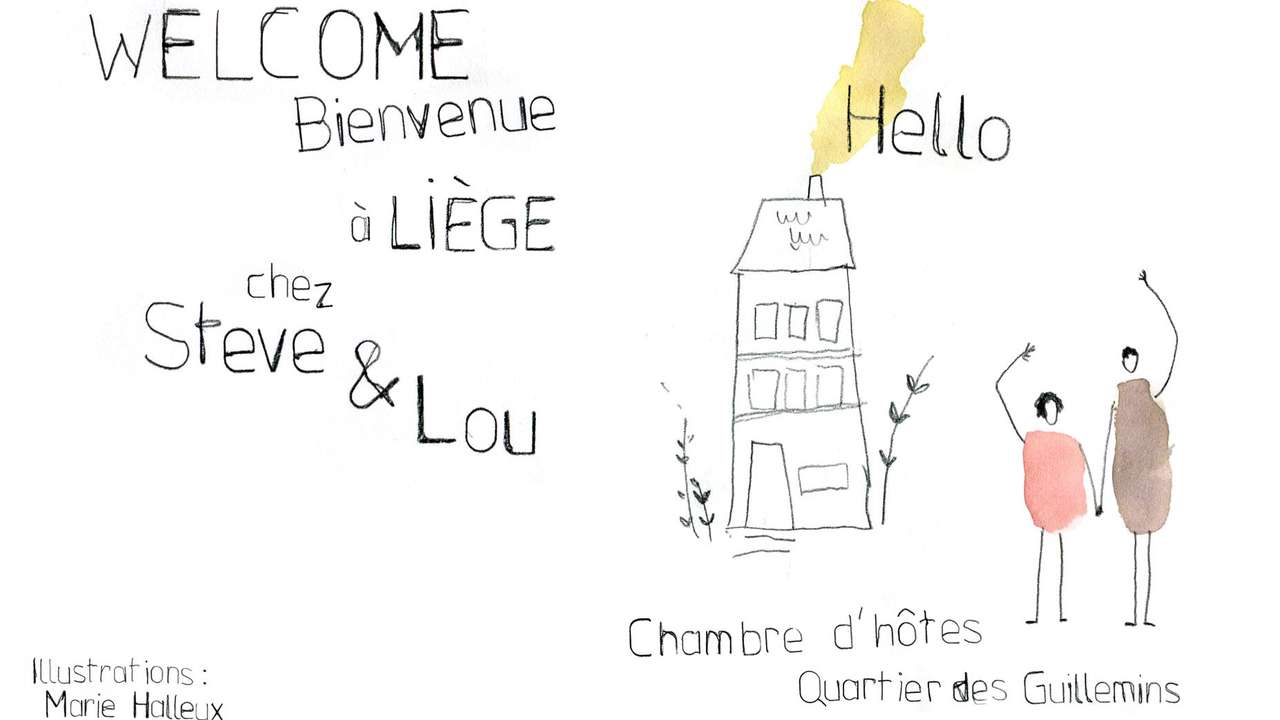 WELCOME
Bienvenue
à LIÈGE
chez
Steve
& Lou
Hello
Chambre d'hôtes
Quartier des Guillemins
Illustrations :
Marie Halleux